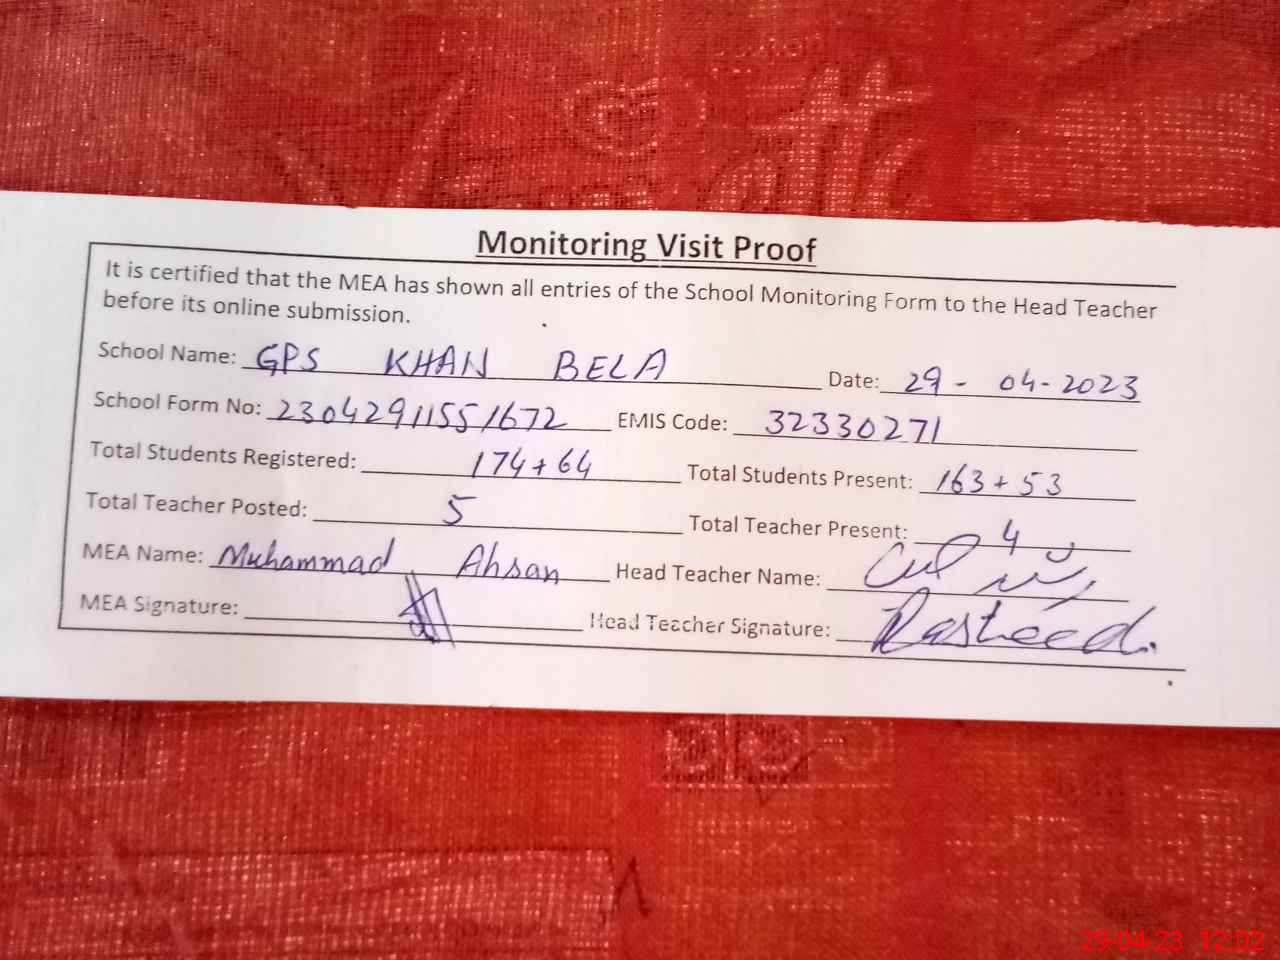 Monitoring Visit Proof
It is certified that the MEA has shown all entries of the School Monitoring Form to the Head Teacher
before its online submission.
School Name: GPS KHAN BELA Date: 29-04-2023
School Form No: 23042911551672 EMIS Code: 32330271
Total Students Registered: 174+64 Total Students Present: 163+53
Total Teacher Posted: 5 Total Teacher Present: 4
MEA Name: Muhammad Ahsan Head Teacher Name:
MEA Signature: Head Teacher Signature: Rasheed.
29-04-23 12:02